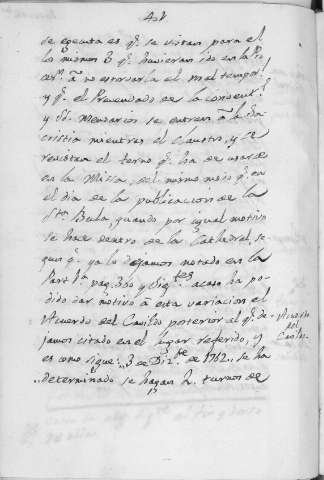 se egecuta es q.e se vistan para el
lo mismo q.e huvieran ido en la Pro
ces.n a no estorvarla el mal tempor.l
y q.e el Prevendado de la
y se entren a la Sa
cristia mientras el Claustro, y se
revistan el terno q.e ha de usarse
en la Missa, del mismo modo q.e en
el dia de la publicacion de la
S.ta Bula, quando por igual motivo
se hace dentro de la Cathedral, se
gun q.e ya lo dejamos notado en la
Part. 1.a pag. 360 y sig.tes acaso ha po
dido dar motivo a esta variacion el
Acuerdo del Cavildo posterior al q.e de-
jamos citado en el lugar referido, y
es como sigue: ,, 3 de Diz.re de 1762 ,, se ha
,, determinado se hagan turnos de
Acuerdo
del
Cavildo